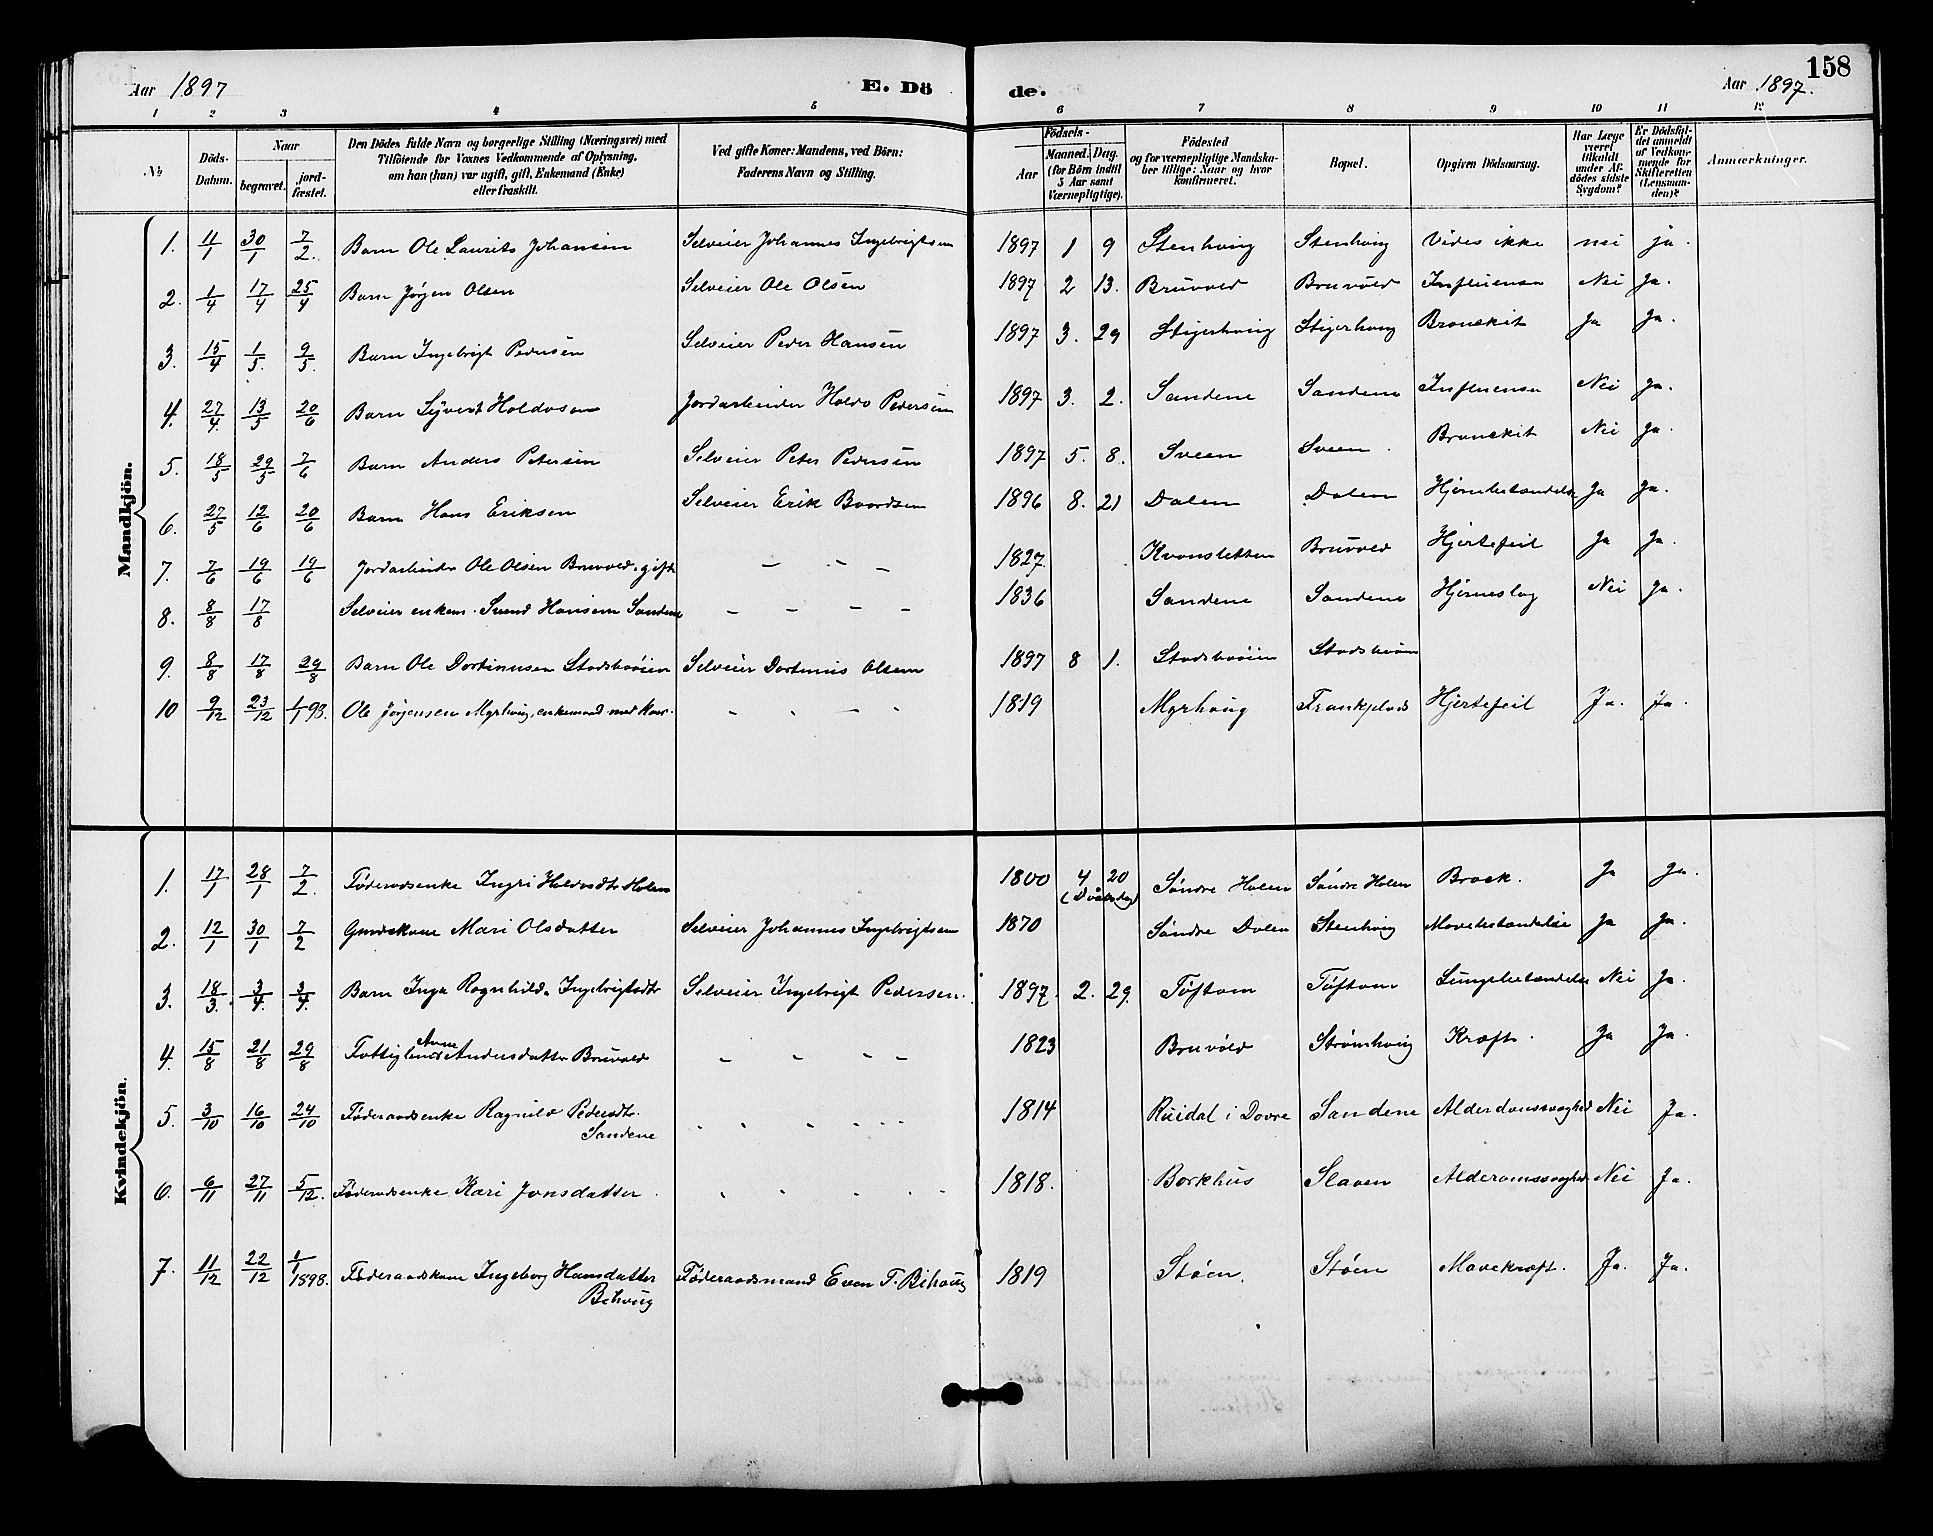 158
Aar 1897 E. Dö de. Aar 1897.
1 2 3 4 5 6 7 8 9 10 11 12
№ Döds-Datum. Naar begravet. jordfæstet. Den Dödes fulde Navn og borgerlige Stilling (Næringsvei) med Tilföiende for Voxnes Vedkommende af Oplysning, om han (hun) var ugift, gift, Enkemand (Enke) eller fraskilt. Ved gifte Koner: Mandens, ved Börn: Faderens Navn og Stilling. Födsels- Aar Maaned. Dag. (for Börn indtil 5 Aar samt Værnepligtige). Födested og for værnepligtige Mandskaber tillige: Naar og hvor konfirmeret. Bopæl. Opgiven Dödsaarsag. Har Læge været tilkaldt under Afdödes sidste Sygdom? Er Dödsfaldet anmeldt af Vedkommende for Skifteretten (Lensmanden)? Anmærkninger.
Mandkjön.
1. 11/1 30/1 7/2. Barn Ole Laurits Johansen Selveier Johannes Ingebrigtsen 1897 1 9 Stenhoug Stenhoug Vides ikke nei ja.
2. 1/4 17/4 25/4 Barn Jørgen Olsen Selveier Ole Olsen 1897 2 13. Bruvold Bruvold Influensa Nei Ja.
3. 15/4 1/5. 9/5. Barn Ingebrigt Pedersen Selveier Peder Hansen 1897 3. 29 Stigerhoug Stigerhoug Bronkit Ja Ja.
4. 27/4. 13/5 20/6 Barn Syvert Holdosen Jordarbeider Holdo Pedersen 1897 3. 2. Sandene Sandene Influensa Nei Ja.
5. 18/5 29/5 7/6 Barn Anders Petersen Selveier Peter Pedersen 1897 5. 8. Sveen Sveen. Bronkit Nei Ja.
6. 27/5 12/6 20/6 Barn Hans Eriksen Selveier Erik Baardsen 1896 8. 21 Dalen Dalen Hjernebetændelse Ja Ja.
7. 7/6 19/6 19/6 Jordarbeider Ole Olsen Bruvold. gift - - - 1827. Kvansletten Bruvold Hjertefeil Ja Ja.
8. 8/8 17/8 Selveier enkem. Svend Hansen Sandene - - - - 1836 Sandene Sandene Hjerneslag Nei Ja.
9. 8/8 17/8 29/8 Barn Ole Dortinusen Selveier Dortinus Olsen 1897 8 1.
10 9/12 23/12 1/1 98. Ole Jørgensen Myrhoug, enkemand - . - . 1819 Myrhoug Hjertefeil Ja. Ja.
Kvindekjön.
1. 17/1 28/1 7/2. Føderaadsenke Ingri Holdosdtr Holen 1800 4 20 Søndre Holen Søndre Holen Brock. Ja Ja.
2. 12/1 30/1 7/2 Gaardskone Mari Olsdatter Selveier Johannes Ingebrigtsen 1870 Søndre Dalen Stenhoug Mavebetændelse Ja Ja.
3. 18/3. 3/4. 3/4. Barn Inga Ragnhild Ingebrigtsdtr Selveier Ingebrigt Pedersen. 1897. 2. 29. Tøftom Tøftom Lungebetændelse Nei Ja.
4. 15/8 21/8 29/8 Fattiglem Anne Andersdatter Bruvold - - - - 1823 Bruvold Strømhoug Kræft. Ja Ja.
5. 3/10 16/10 24/10 Føderaadsenke Ragnild Pedersdtr. Sandene . . . . . 1814 i Dovre Sandene Alderdomssvaghed Nei Ja.
6. 6/11 27/11 5/12. Føderaadsenke Kari Jonsdatter . . . . . 1818. Borkhus Slaven Alderdomssvaghed Nei Ja.
7. 11/12 22/12 1/1 1898. Føderaadskone Ingeborg Hansdatter Bihoug Føderaadsmand Even T. Bihoug 1819 Støen. Støen Mavekræft. Ja. Ja.